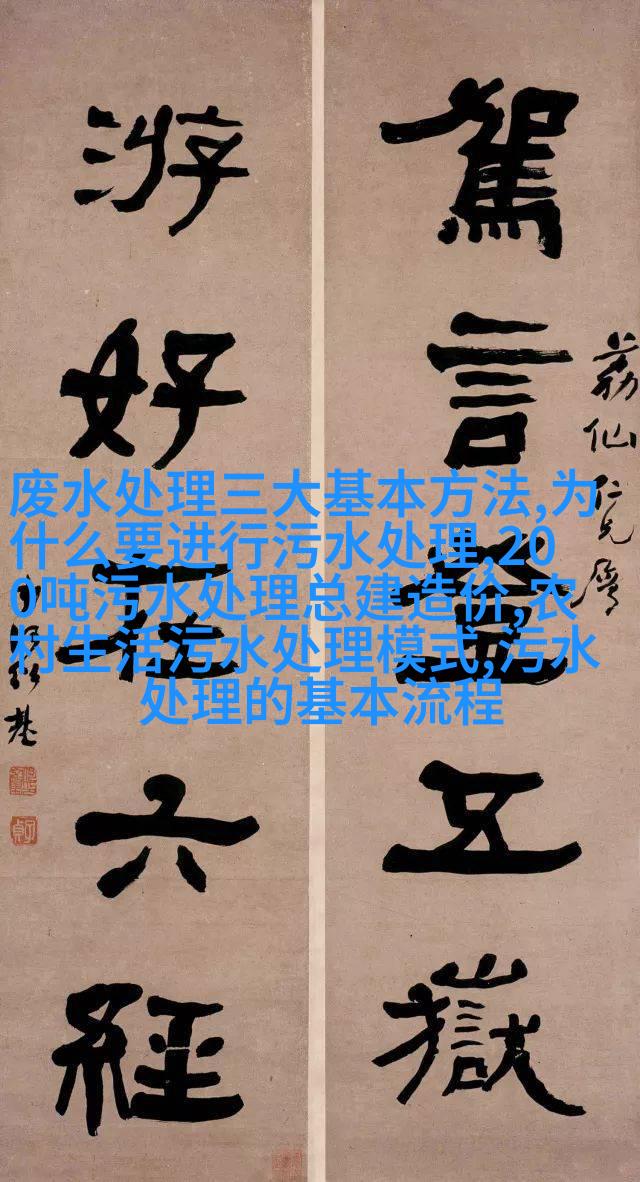 荔仙仁兄屬
駕言登五嶽
游好在六經
何紹基
子貞
废水处理三大基本方法,为
什么要进行污水处理,20
0吨污水处理总建造价,农
村生活污水处理模式,污水
处理的基本流程